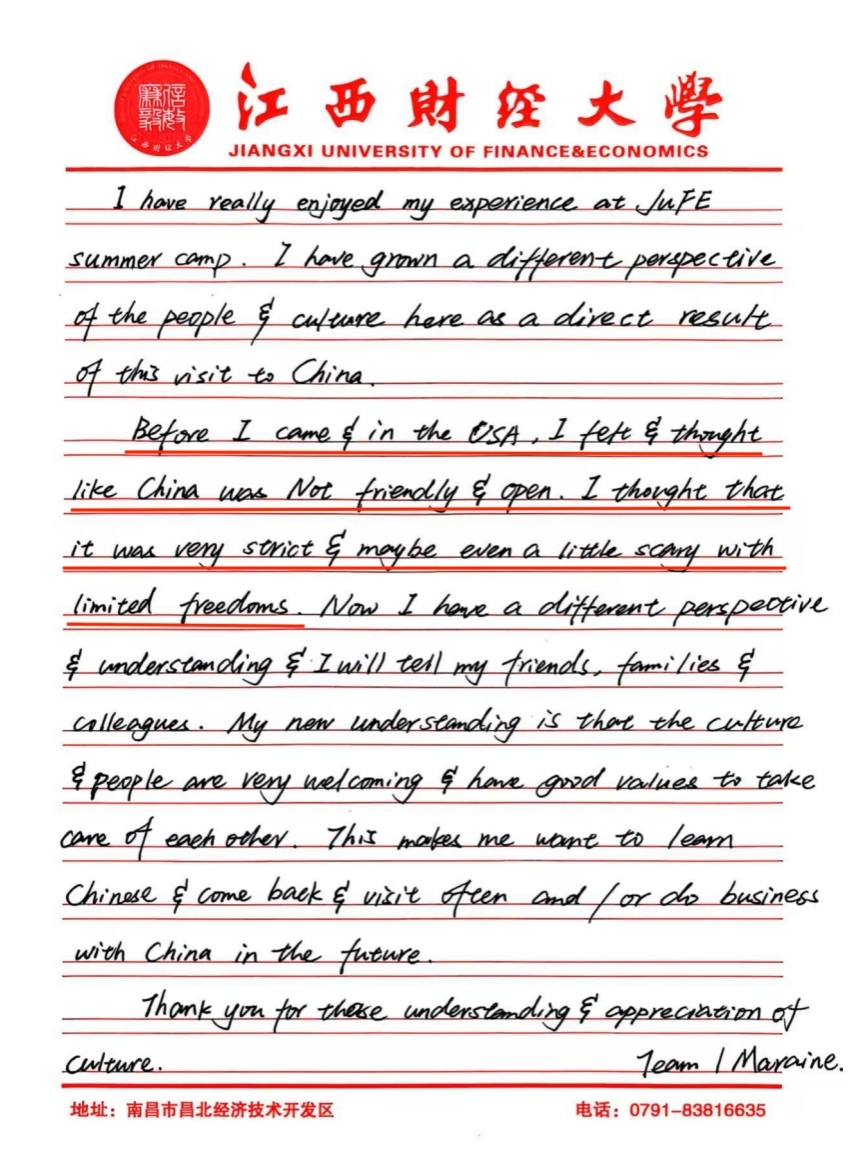 江西財經大學
JIANGXI UNIVERSITY OF FINANCE&ECONOMICS
I have really enjoyed my experience at JUFE
summer camp. I have grown a different perspective
of the people & culture here as a direct result
of this visit to China.
Before I came & in the USA, I felt & thought
like China was Not friendly & open. I thought that
it was very strict & maybe even a little scary with
limited freedoms. Now I have a different perspective
& understanding & I will tell my friends, families &
colleagues. My new understanding is that the culture
& people are very welcoming & have good values to take
care of each other. This makes me want to learn
Chinese & come back & visit often and / or do business
with China in the future.
Thank you for these understanding & appreciation of
culture.
Team 1 Maraine.
地址：南昌市昌北经济技术开发区
电话：0791-83816635